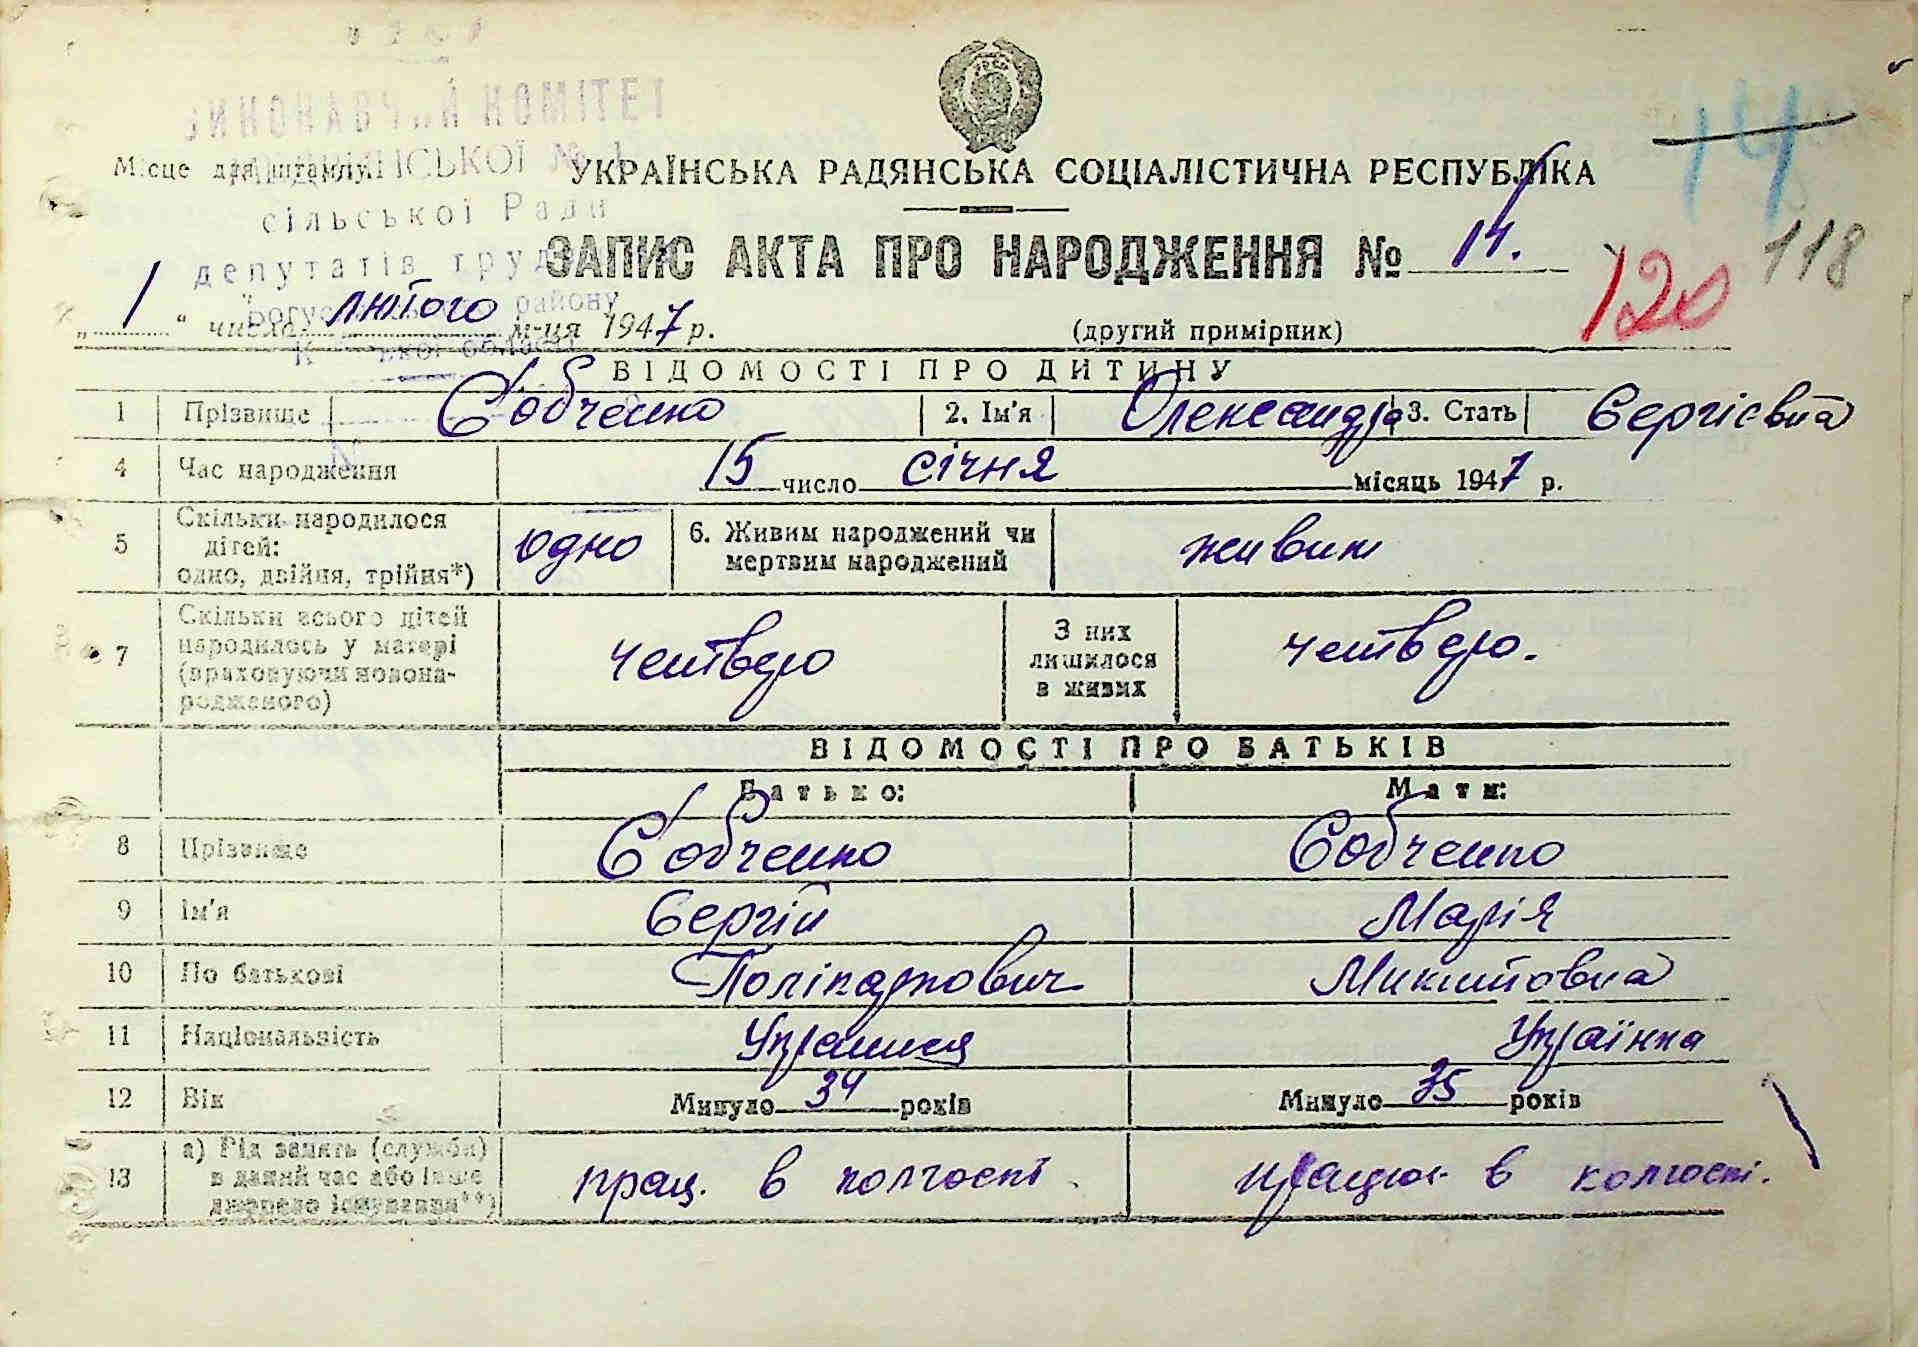 ВИКОНАВЧИЙ КОМІТЕТ
Місце для штампу
УКРАЇНСЬКА РАДЯНСЬКА СОЦІАЛІСТИЧНА РЕСПУБЛІКА
14
сільської Ради
депутатів труд
ЗАПИС АКТА ПРО НАРОДЖЕННЯ № 14.
120 118
району
„ 1 “ число лютого м-ця 1947 р.
(другий примірник)
ВІДОМОСТІ ПРО ДИТИНУ
1 Прізвище Собченко 2. Ім'я Олександра 3. Стать Сергієвна
4 Час народження 15 число січня місяць 1947 р.
5 Скільки народилося дітей: одно, двійня, трійня*) одно 6. Живим народжений чи мертвим народжений живим
7 Скільки всього дітей народилось у матері (враховуючи новонародженого) четверо З них лишилося в живих четверо.
ВІДОМОСТІ ПРО БАТЬКІВ
Батько: Мати:
8 Прізвище Собченко Собченко
9 Ім'я Сергій Марія
10 По батькові Полікарпович Микитовна
11 Національність Українец Українка
12 Вік Минуло 34 років Минуло 35 років
13 а) Рід занять (служби) в даний час або інше джерело існування**) прац. в колгоспі. працює в колгоспі.